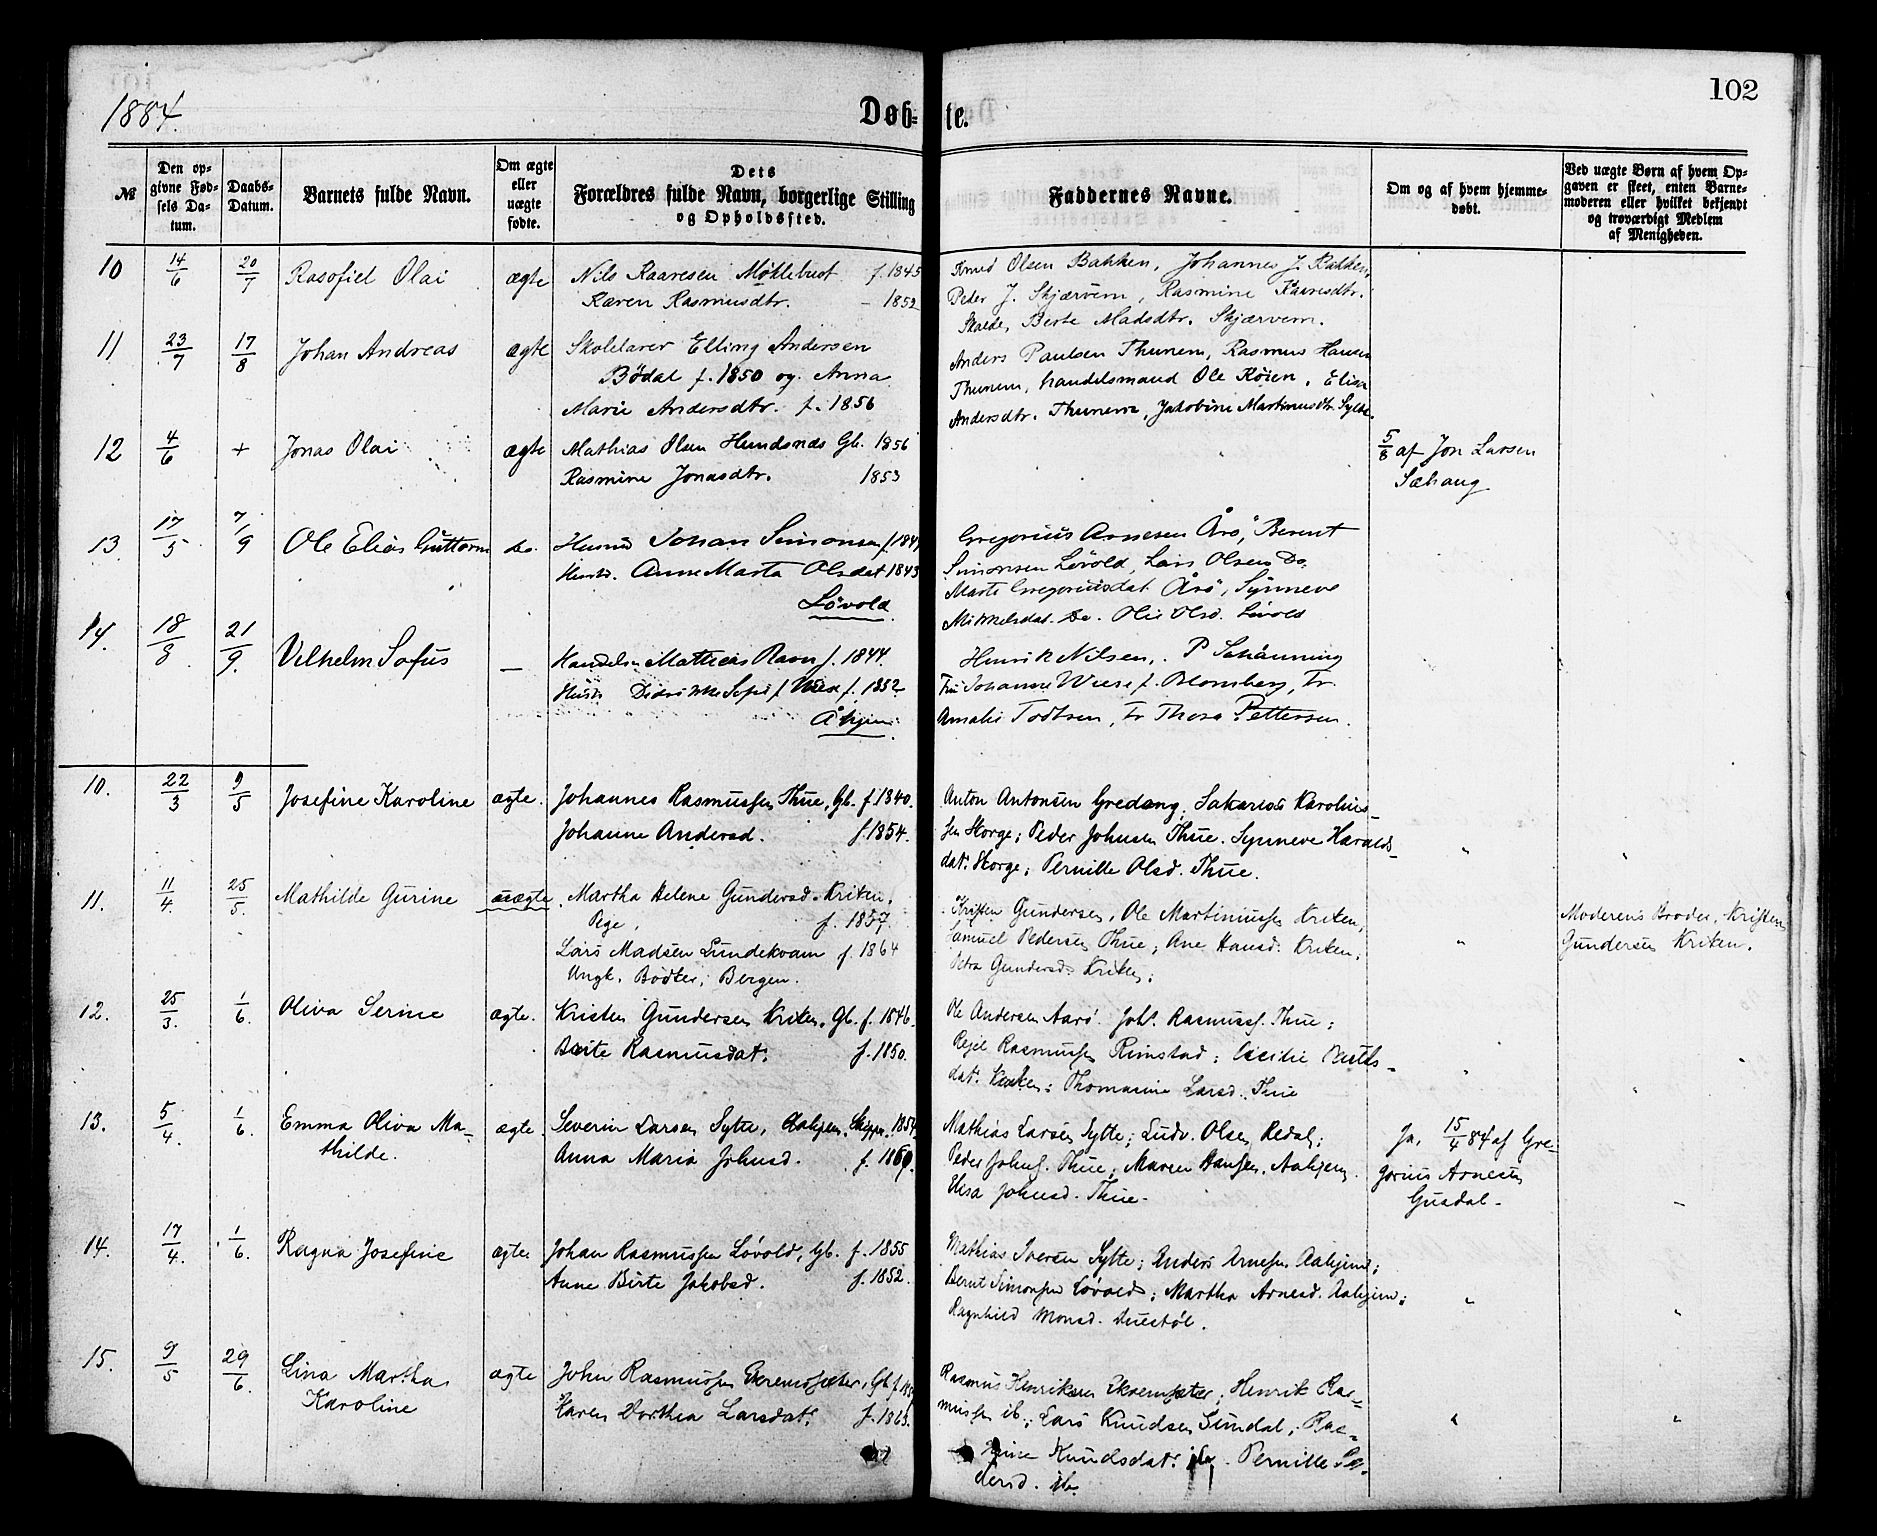 1884.
Døb-
te.
102
№
Den op-
givne Fød-
sels Da-
tum.
Daabs-
Datum.
Barnets fulde Navn.
Om ægte
eller
uægte
fødte.
Dets
Forældres fulde Navn, borgerlige Stilling
og Opholdssted.
Faddernes Navne.
Om og af hvem hjemme-
døbt.
Ved uægte Børn af hvem Op-
gaven er skeet, enten Barne-
moderen eller hvilket bekjendt
og troværdigt Medlem
af Menigheden.
10 14/6 20/7 Rasofiel Olai ægte Nils Kaaresen Møklebust f. 1845
Karen Rasmusdtr. - 1852
Knud Olsen Bakken, Johannes J. Bakken,
Peder J. Skjærvem, Rasmine
Berte Madsdtr. Skjærvem.
11 23/7 17/8 Johan Andreas ægte Skolelærer Elling Andersen
Bødal f. 1850 og Anna
Marie Andersdtr. f. 1856
Anders Paulsen Thunem, Rasmus Hansen
Thunem, handelsmand Ole Røsen, Elisa
Andersdtr. Thunem, Jakobine Martinusdtr. Sylte
12 4/6 + Jonas Olai ægte Mathias Olsen Hundsnæs Gb. 1856
Rasmine Jonasdtr. 1853
5/8 af Jon Larsen
Sæhaug
13 17/5 7/9 Ole Elias Guttorm do. Husmd Johan Simonsen f.
Hustr. Anne Marta Olsdat 1843
Løvold
Gregorius Arnesen Årø, Berent
Simonsen Løvold, Lars Olsen Do
Marte Gregoriusdat Årø, Synneve
Mikkelsdat. Do. Olsd. Løvold
14. 18/8 21/9. Vilhelm Sofus — Handelsm Mathias Ravn f. 1844.
Hustr Didrikke Sofie f. Wiese f. 1852
Åhjem
Henrik Nilsen, P Schånning
Fru Johanne Wiese f. Blomberg, Fr.
Amalie Todtsen, Fr Thora Pettersen.
10. 22/3 9/5 Josefine Karoline ægte. Johannes Rasmussen Thue, Gb. f. 1840.
Johanne Andersd. f. 1854.
Anton Antonsen Gredang, Sakarias Karolius-
sen Horge; Peder Johnsen Thue. Synneve Haralds-
dat. Horge; Pernille Olsd. Thue.
11. 11/4. 25/5. Mathilde Gurine uægte. Martha Helene Gundersd. Kriken,
Pige, f. 1857.
Lars Madsen Lundekvam f. 1864
Ungk. Bødker, Bergen.
Kristen Gundersen, Ole Martinussen Kriken,
Samuel Pedersen Thue; Ane Hansd. Kriken;
Petra Gundersd. Kriken;
Moderens Broder, Kristen
Gundersen Kriken.
12. 25/3. 1/6. Oliva Serine ægte. Kristen Gundersen Kriken. Gb. f. 1846.
Berte Rasmusdat. f. 1850.
Ole Andersen Aarø. Joh. Rasmuss. Thue;
Kejel Rasmussen Rimstad; Cecilie
dat. Kriken; Thomasine Larsd. Thue
13. 5/4. 1/6. Emma Oliva Ma-
thilde. ægte. Severin Larsen Sylte, Aahjem. Skipper.
Anna Maria Johnsd. f.
Mathias Larsen Sylte; Ludv. Olsen Redal;
Peder Johns. Thue; Maren Hansen. Aahjem.
Elisa Johnsd. Thue.
Ja. 15/4 84 af Gre-
gorius Arnesen
Gusdal.
14. 17/4. 1/6. Ragna Josefine ægte Johan Rasmussen Løvold, Gb. f. 1855
Anne Birte Jakobsd. f. 1852.
Mathias Iversen Sylte; Anders Arnesen Aahjem;
Bernt Simonsen Løvold; Martha Arnesd. Aahjem;
Ragnhild Monsd.
15. 9/5 29/6. Lina Martha
Karoline ægte John Rasmussen Ekremsæter, Gb.
Karen Dorthea Larsdat. f. 1863.
Rasmus Henriksen Ekremsæter; Henrik Ras-
mussen ib.; Lars Knudsen Sundal; Ras-
mine Knudsdat. ib. Pernille
dersd. ib.